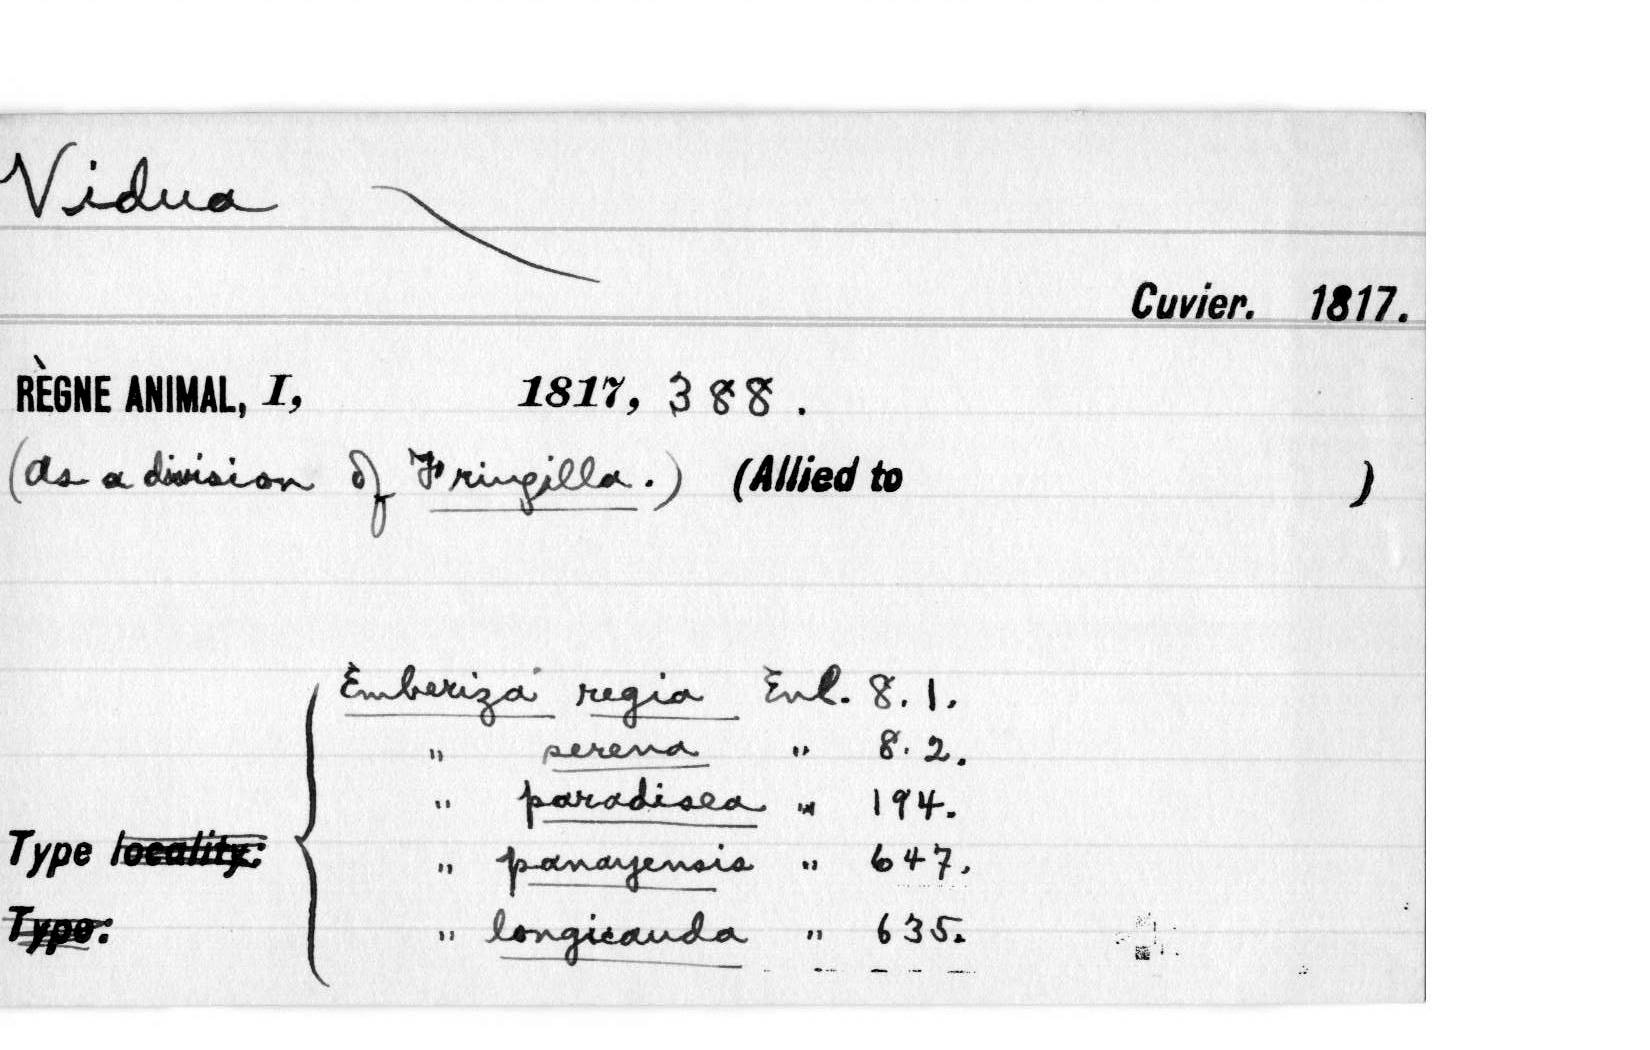 Vidua
Cuvier. 1817.
RÈGNE ANIMAL, I, 1817, 388.
(As a division of Fringilla.) (Allied to )
Emberiza regia Enl. 8.1.
" serena " 8.2.
" paradisea " 194.
Type locality:
" panayensis " 647.
Type:
" longicauda " 635.